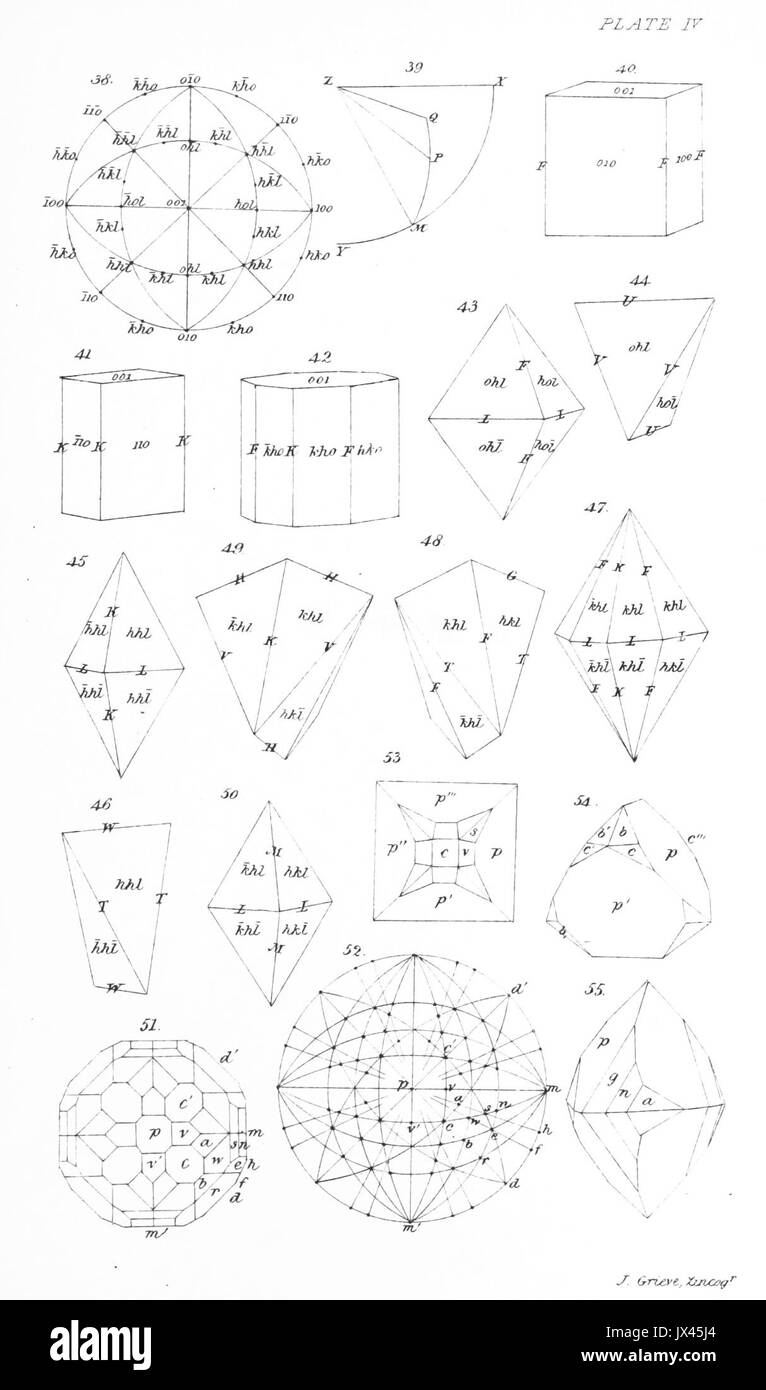 PLATE IV
38.
0ī0
k̄h̄o
kh̄o
īī0
1ī0
h̄k̄o
hk̄o
k̄h̄l
kh̄l
h̄h̄l
oh̄l
hh̄l
h̄k̄l
hk̄l
ī00
h̄ol
001
hol
100
h̄kl
hkl
h̄ko
hko
h̄hl
k̄hl
ohl
khl
hhl
ī10
110
k̄ho
kho
010
39
Z
X
Q
P
M
Y
40.
001
F
010
F
100
F
41
001
K
ī10
K
110
K
42
001
F
k̄ho
K
kho
F
hko
43
F
ohl
hol
L
L
ohl̄
hol̄
F
44
U
ohl
V
V
hol̄
U
45
K
h̄hl
hhl
L
L
h̄hl̄
hhl̄
K
49.
H
H
k̄hl
khl
K
V
V
hkl̄
H
48.
G
khl
hkl
F
T
T
F
k̄hl̄
47.
F
K
F
k̄hl
khl
khl
L
L
L
k̄hl̄
khl̄
hkl̄
F
K
F
46
W
hhl
T
T
h̄hl̄
W
50
M
k̄hl
hkl
L
L
k̄hl̄
hkl̄
M
53
p'''
s
p''
c
v
p
p'
54.
b'
b
c'''
c'
c
p
p'
b,
51.
d'
c'
p
v
a
s
n
m
v'
c
w
e
h
b
f
r
d
m'
52.
d'
c'
p
v
m
a
s
n
v'
c
w
e
h
b
f
r
d
m'
55.
p
g
n
a
J. Grieve, Zincogr
alamy
alamy
Image ID: JX45J4
www.alamy.com